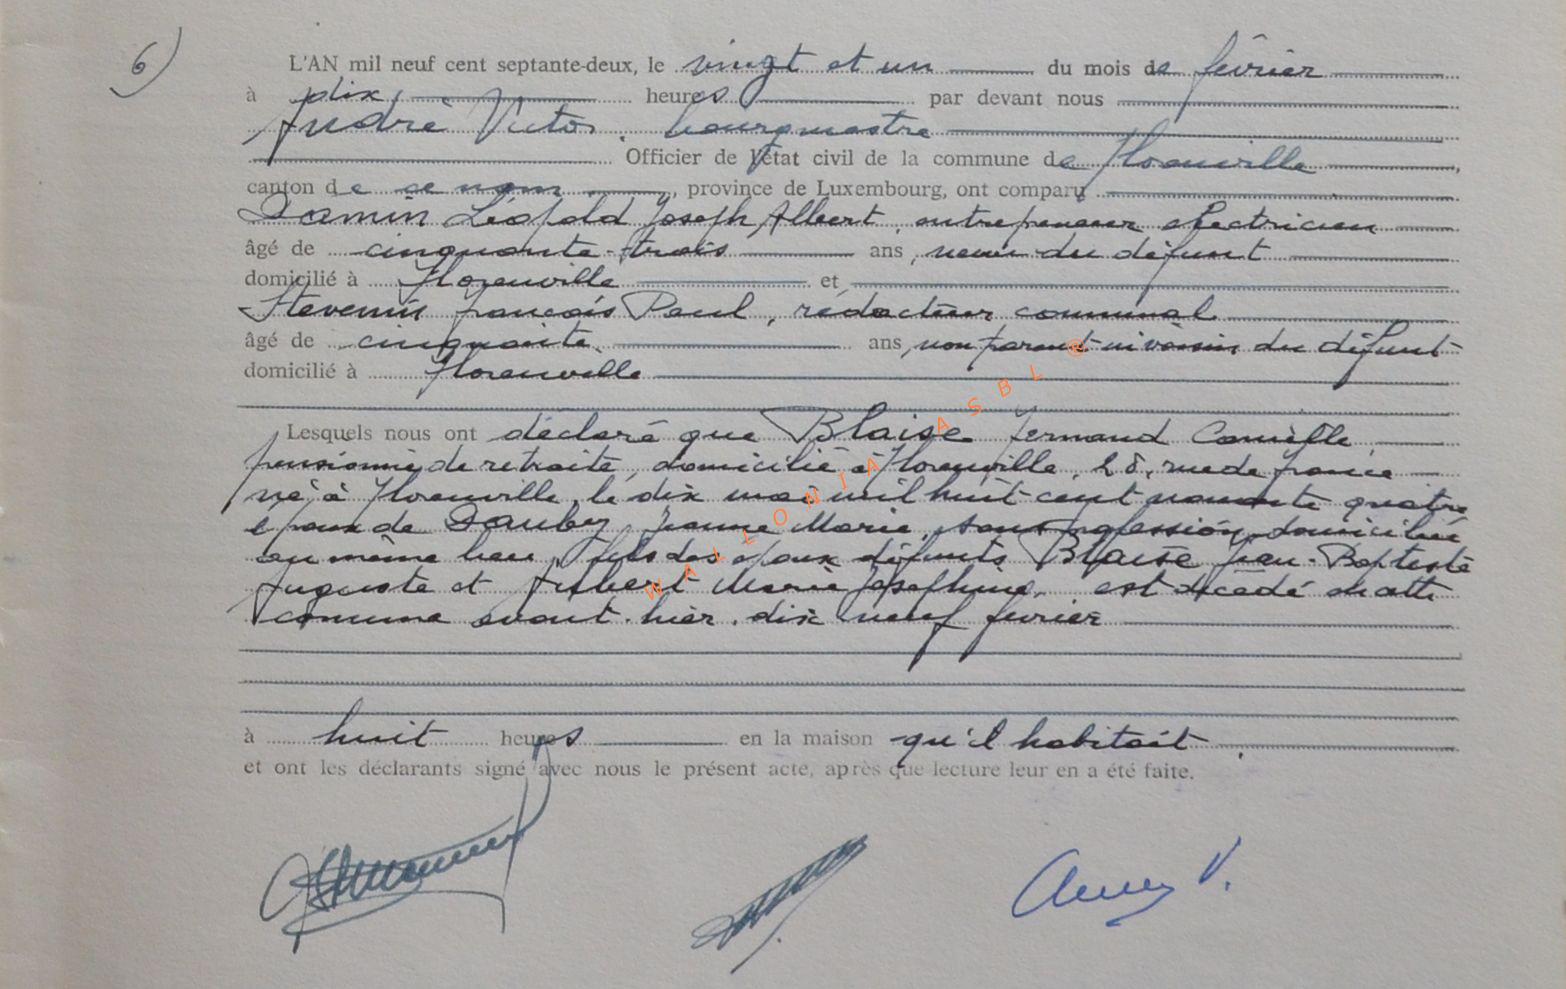 6)
L'AN mil neuf cent septante-deux, le vingt et un du mois de février
à dix heures par devant nous
André Victor, bourgmestre
Officier de l'état civil de la commune de Florenville
canton de ce nom, province de Luxembourg, ont comparu
Damin Léopold Joseph Albert, entrepreneur électricien
âgé de cinquante-trois ans, neveu du défunt
domicilié à Florenville et
Stevenin François Paul, rédacteur communal
âgé de cinquante ans, non parent ni voisin du défunt
domicilié à Florenville
Lesquels nous ont déclaré que Blaise Fernand Camille
pensionné de retraite, domicilié à Florenville, 28, rue de France
né à Florenville, le dix mai mil huit cent nonante quatre
époux de Dauby, Jeanne Marie, sans profession, domiciliée
au même lieu, fils des époux défunts Blaise Jean-Baptiste
Auguste et Hubert Marie Josephine, est décédé en cette
commune avant-hier, dix neuf février
à huit heures en la maison qu'il habitait.
et ont les déclarants signé avec nous le présent acte, après que lecture leur en a été faite.
WALLONIA ASBL ®